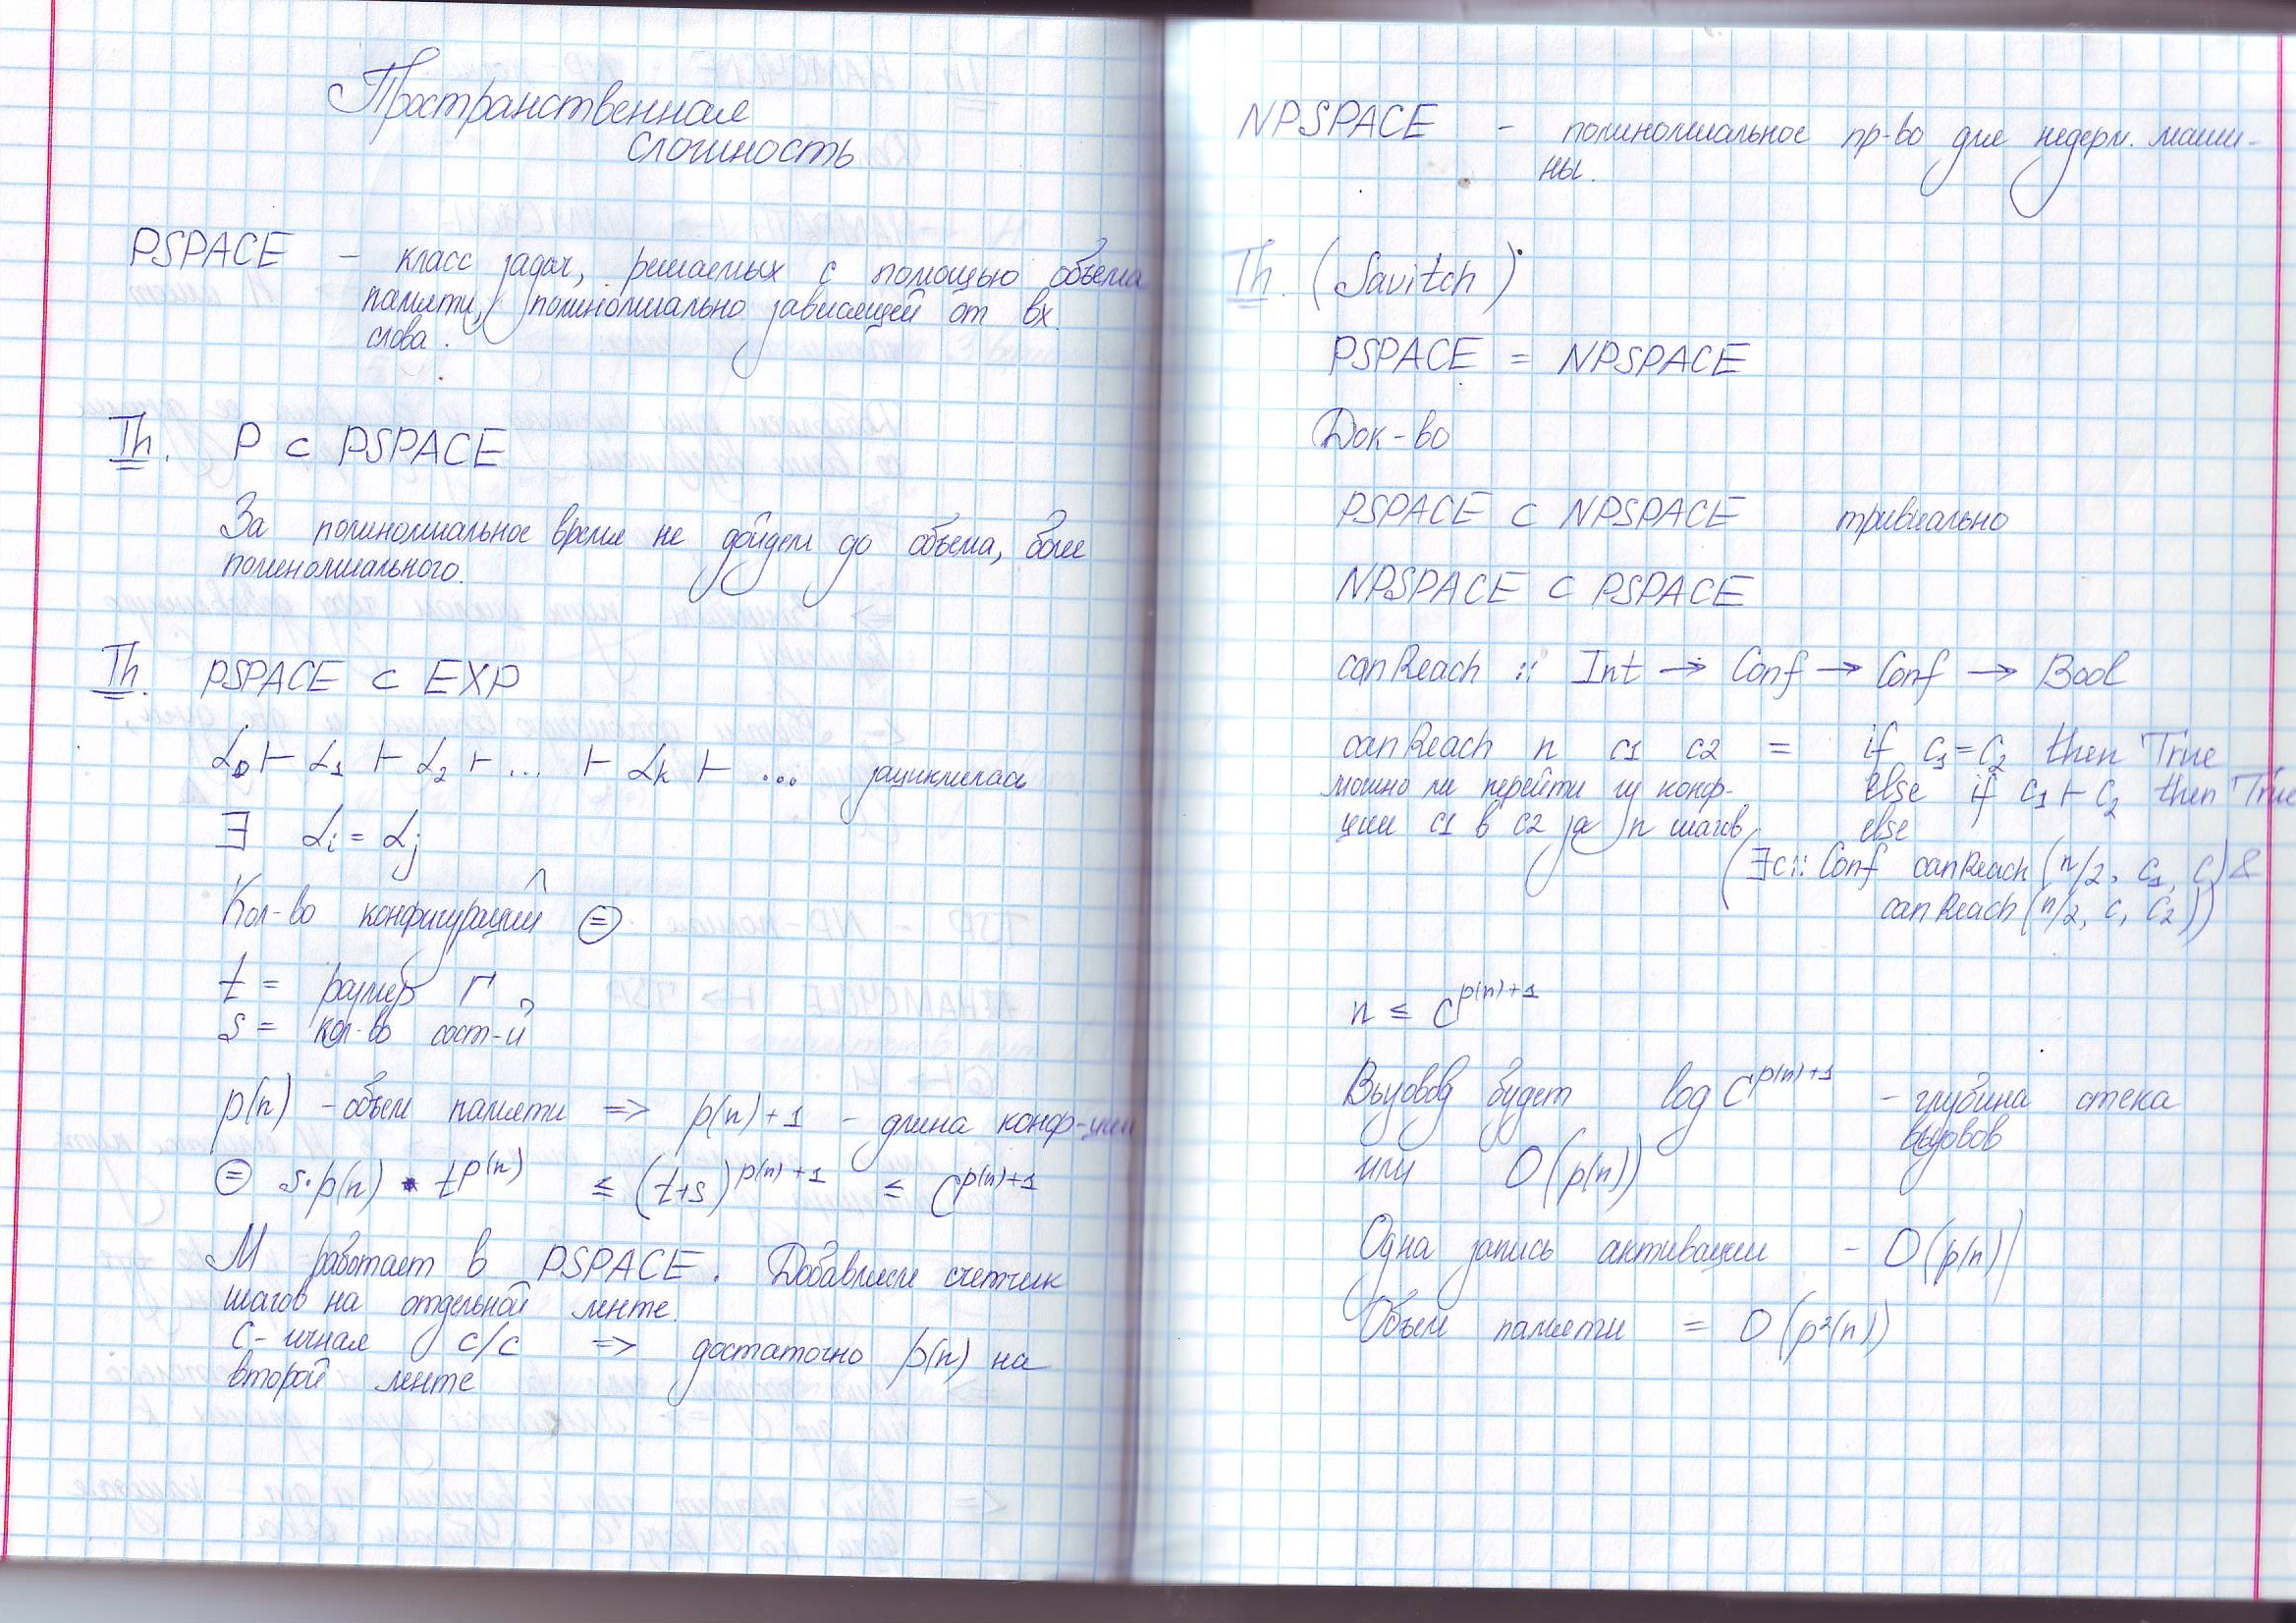 Пространственная
сложность
PSPACE – класс задач, решаемых с помощью объема
памяти, полиномиально зависящей от вх.
слова.
Th. P ⊂ PSPACE
За полиномиальное время не дойдем до объема, более
полиномиального.
Th. PSPACE ⊂ EXP
α₀ ⊢ α₁ ⊢ α₂ ⊢ ... ⊢ αₖ ⊢ ... зациклилась
∃ αᵢ = αⱼ
Кол-во конфигураций ⊜
t = размер Г
s = кол-во сост-й
p(n) – объем памяти => p(n)+1 – длина конф-ции
⊜ s·p(n) * t^p(n) ≤ (t+s)^p(n)+1 ≤ c^p(n)+1
М работает в PSPACE. Добавляем счетчик
шагов на отдельной ленте.
С-ичная с/с => достаточно p(n) на
второй ленте
NPSPACE – полиномиальное пр-во для недерм. маши-
ны.
Th. (Savitch)
PSPACE = NPSPACE
Док-во
PSPACE ⊂ NPSPACE тривиально
NPSPACE ⊂ PSPACE
canReach :: Int → Conf → Conf → Bool
canReach n c1 c2 = if c₁=c₂ then True
можно ли перейти из конф- else if c₁ ⊢ c₂ then True
ции c1 в c2 за n шагов else
(∃c :: Conf canReach (n/2, c₁, c) &
canReach (n/2, c, c₂))
n ≤ c^p(n)+1
Вызовов будет log c^p(n)+1 – глубина стека
вызовов
или O(p(n))
Одна запись активации – O(p(n))
Объем памяти = O(p²(n))